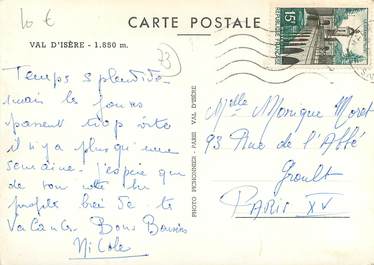 10 €
CARTE POSTALE
VAL D'ISÈRE - 1.850 m.
73
15F
Temps splendide
mais les jours
passent trop vite
il n'y a plus qu'une
semaine. J'espère que
de ton côté tu
profites bien de tes
vacances. Bons Baisers
Nicole
PHOTO PICHONNIER - PARIS VAL D'ISÈRE
Mlle Monique Moret
93 Rue de l'Abbé
Groult
PARIS XV